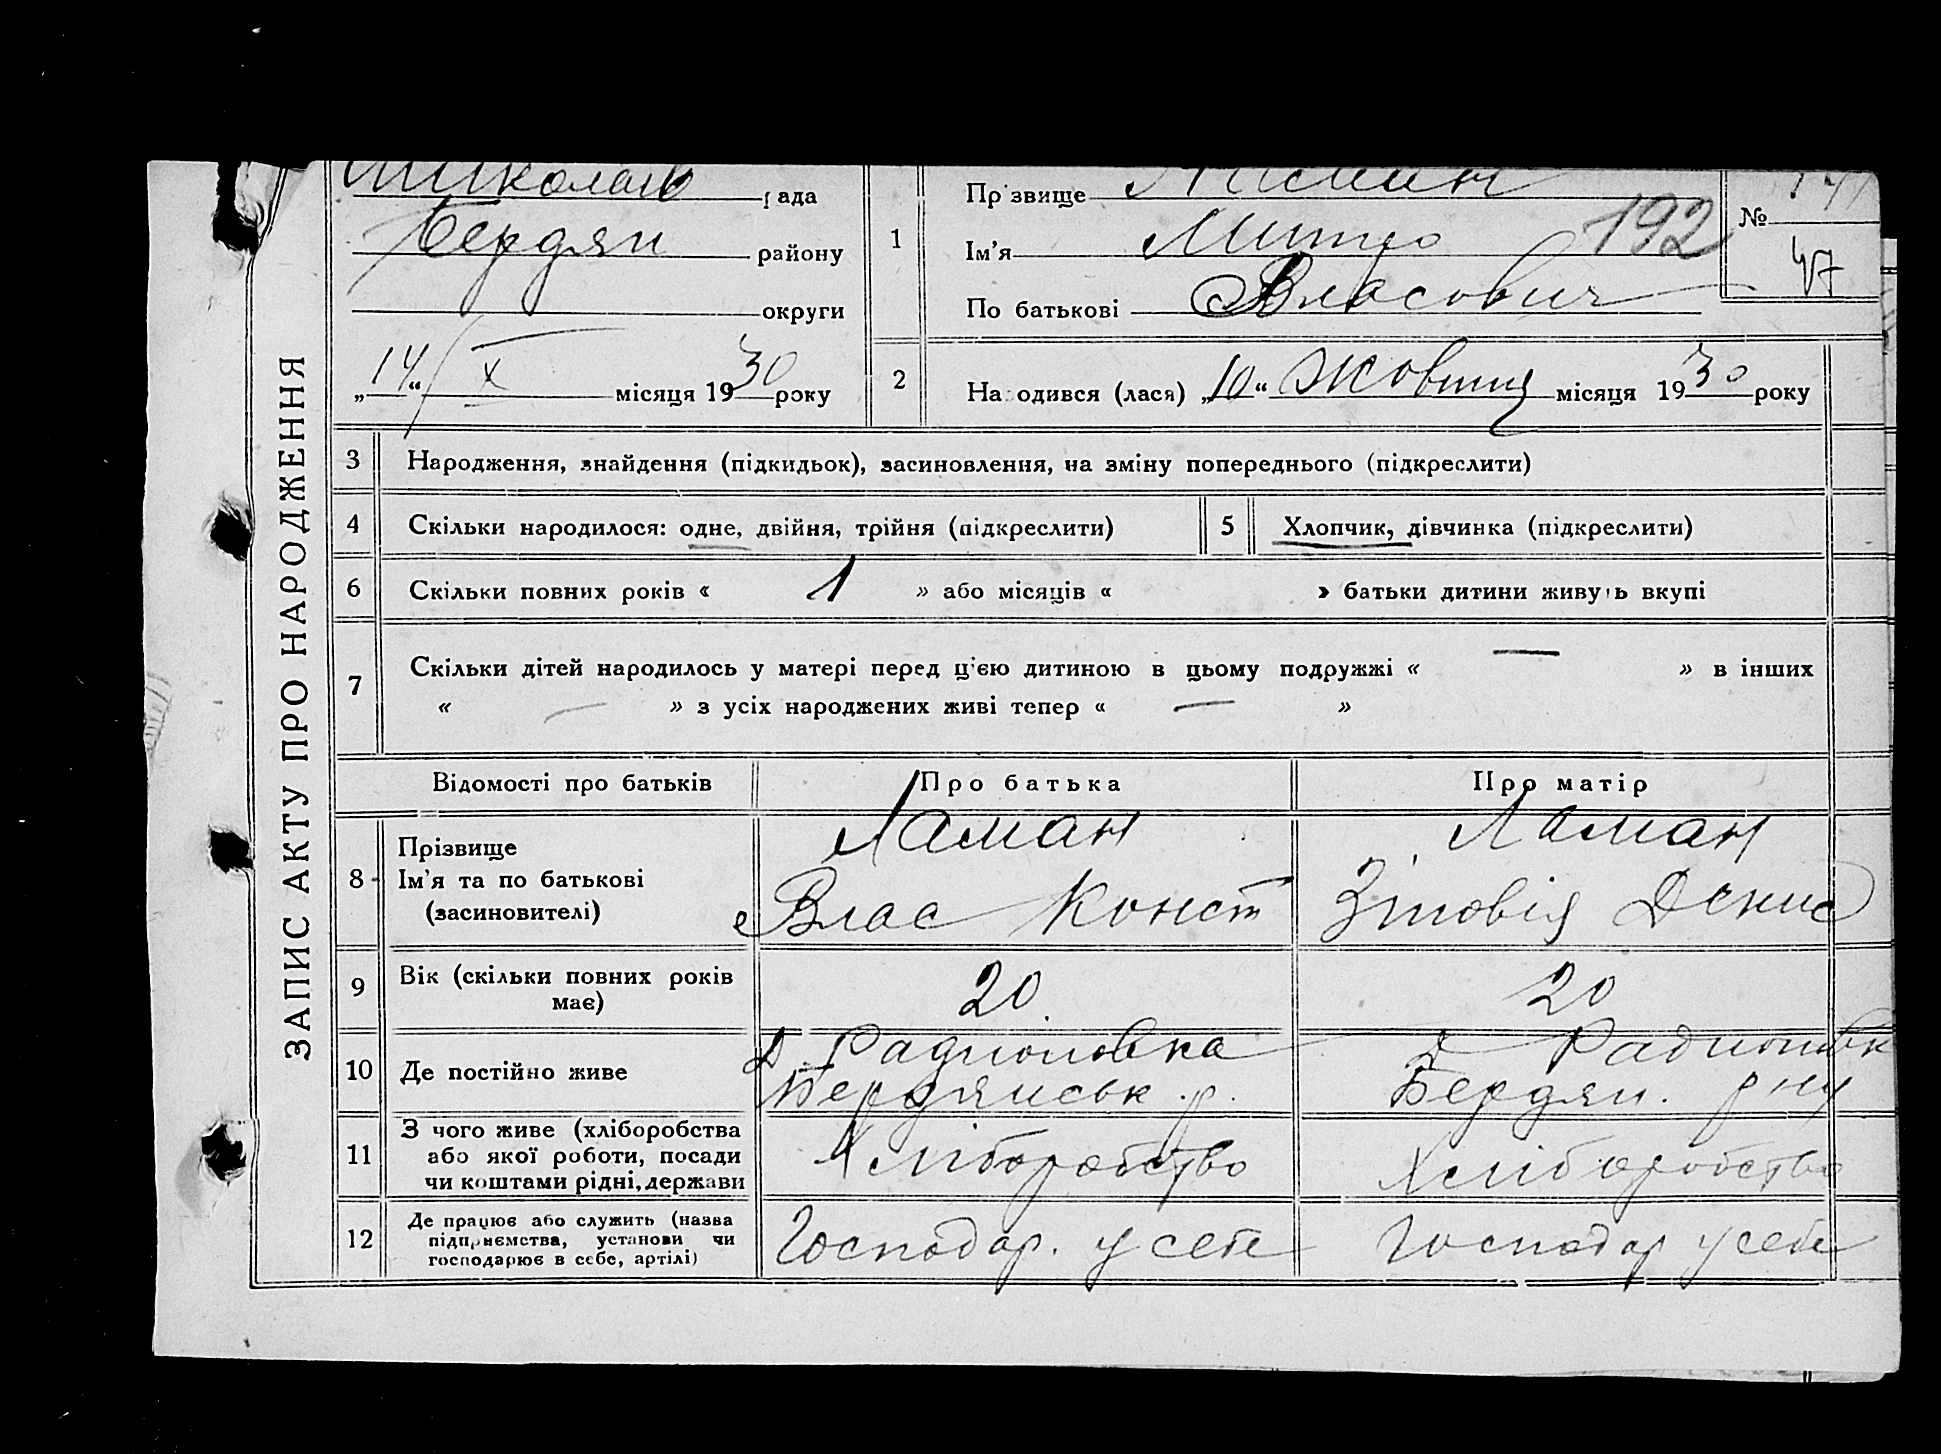 ЗАПИС АКТУ ПРО НАРОДЖЕННЯ
рада
Бердян району
округи
„14“ X місяця 1930 року
1
Прізвище
Ім'я Митро
192
По батькові Власович
№
47
2
Народився (лася) „10“ Жовтня місяця 1930 року
3 Народження, знайдення (підкидьок), засиновлення, на зміну попереднього (підкреслити)
4 Скільки народилося: одне, двійня, трійня (підкреслити)
5 Хлопчик, дівчинка (підкреслити)
6 Скільки повних років « 1 » або місяців « » батьки дитини живуть вкупі
7 Скільки дітей народилось у матері перед цією дитиною в цьому подружжі « — » в інших
« — » з усіх народжених живі тепер « — »
Відомості про батьків Про батька Про матір
8 Прізвище
Ім'я та по батькові
(засиновителі)
Ламан
Влас Конст
Ламан
Зіновія Денис
9 Вік (скільки повних років
має)
20
20
10 Де постійно живе
Д.
Бердянськ. р.
Д
Бердян. р ну
11 З чого живе (хліборобства
або якої роботи, посади
чи коштами рідні, держави
Хліборобство
Хліборобство
12 Де працює або служить (назва
підприємства, установи чи
господарює в себе, артілі)
Господар. у себе
Господар у себе